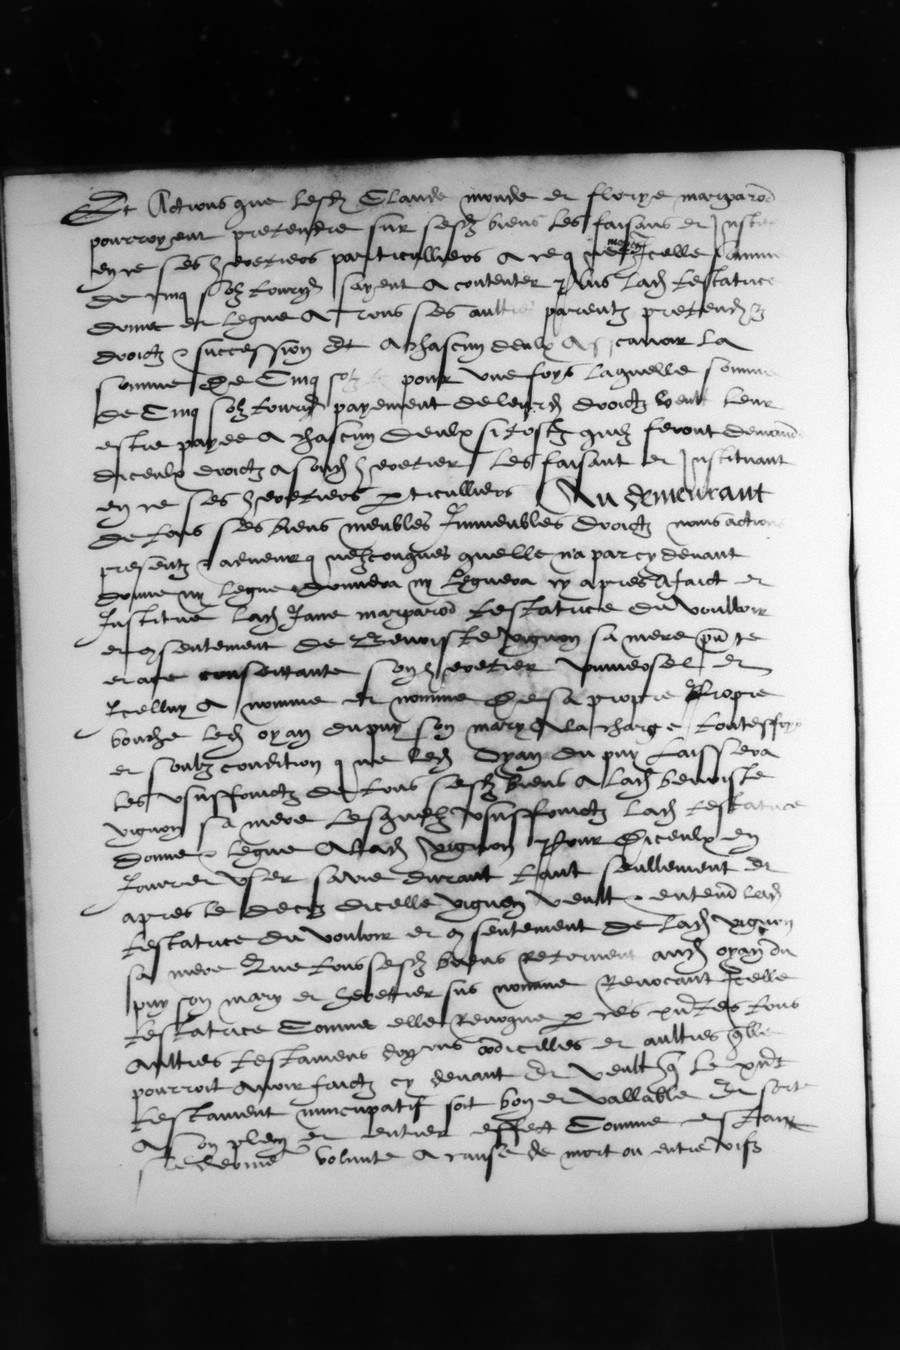 Et Actions que lesd Claude monde et florye margarod
pourroyent pretendre sur sesd biens les faisans et Inste
en ce ses heretiers particulliers a ce que moyen icelle somme
de cinq solz tourn soyent a contenter Plus lad testatrice
donne et legue A Tous ses aultres parentz pretendz
droictz succession Et A chascun deulx Ascavoir La
somme De Cinq solz pour une foys laquelle somme
de Cinq solz tourn payement de leurd droictz veult leur
estre payee A chascun Deulx si tostz quilz feront demand
diceulx droictz A sond heretier Les faisant et Instituant
en ce ses heretiers particulliers Au demeurant
de tous ses biens meubles Immeubles droictz noms actions
presentz advenir quelzconques quelle na par cy devant
donne ny legue donnera ny leguera cy apres A faict et
Institue lad Jane margarod testatrice du voulloir
et consentement de Benoiste vignon sa mere pnte
et a ce consentante son heretier universel et
Icelluy A nomme et nomme De sa propre Propre
bouche led oyan dupuy son mary A la charge toutesfoys
et soubz condition que led Oyan du puy Laissera
les usuffruictz de tous sesd biens A lad benoiste
vignon sa mere Lesquelz usuffruictz lad testatrice
donne legue A lad vignon Pour Diceulx en
Jouyr et user sa vie durant tant seullement et
apres le decez dicelle vignon veult entend lad
testatrice du vouloir et consentement de lad vignon
sa mere Que tous sesd biens retornent aud oyan du
puy son mary et heretier sus nomme Revocant Icelle
testatrice Comme elle Revoque par ces pntes tous
Aultres testamens codicilles et aultres quelle
pourroit Avoir faictz cy devant Et veult que le pnt
testament nuncupatif soit bon et vallable Et sorte
A son plein et entier effect Comme estant
sa derniere volunte A cause de mort ou entre vifz